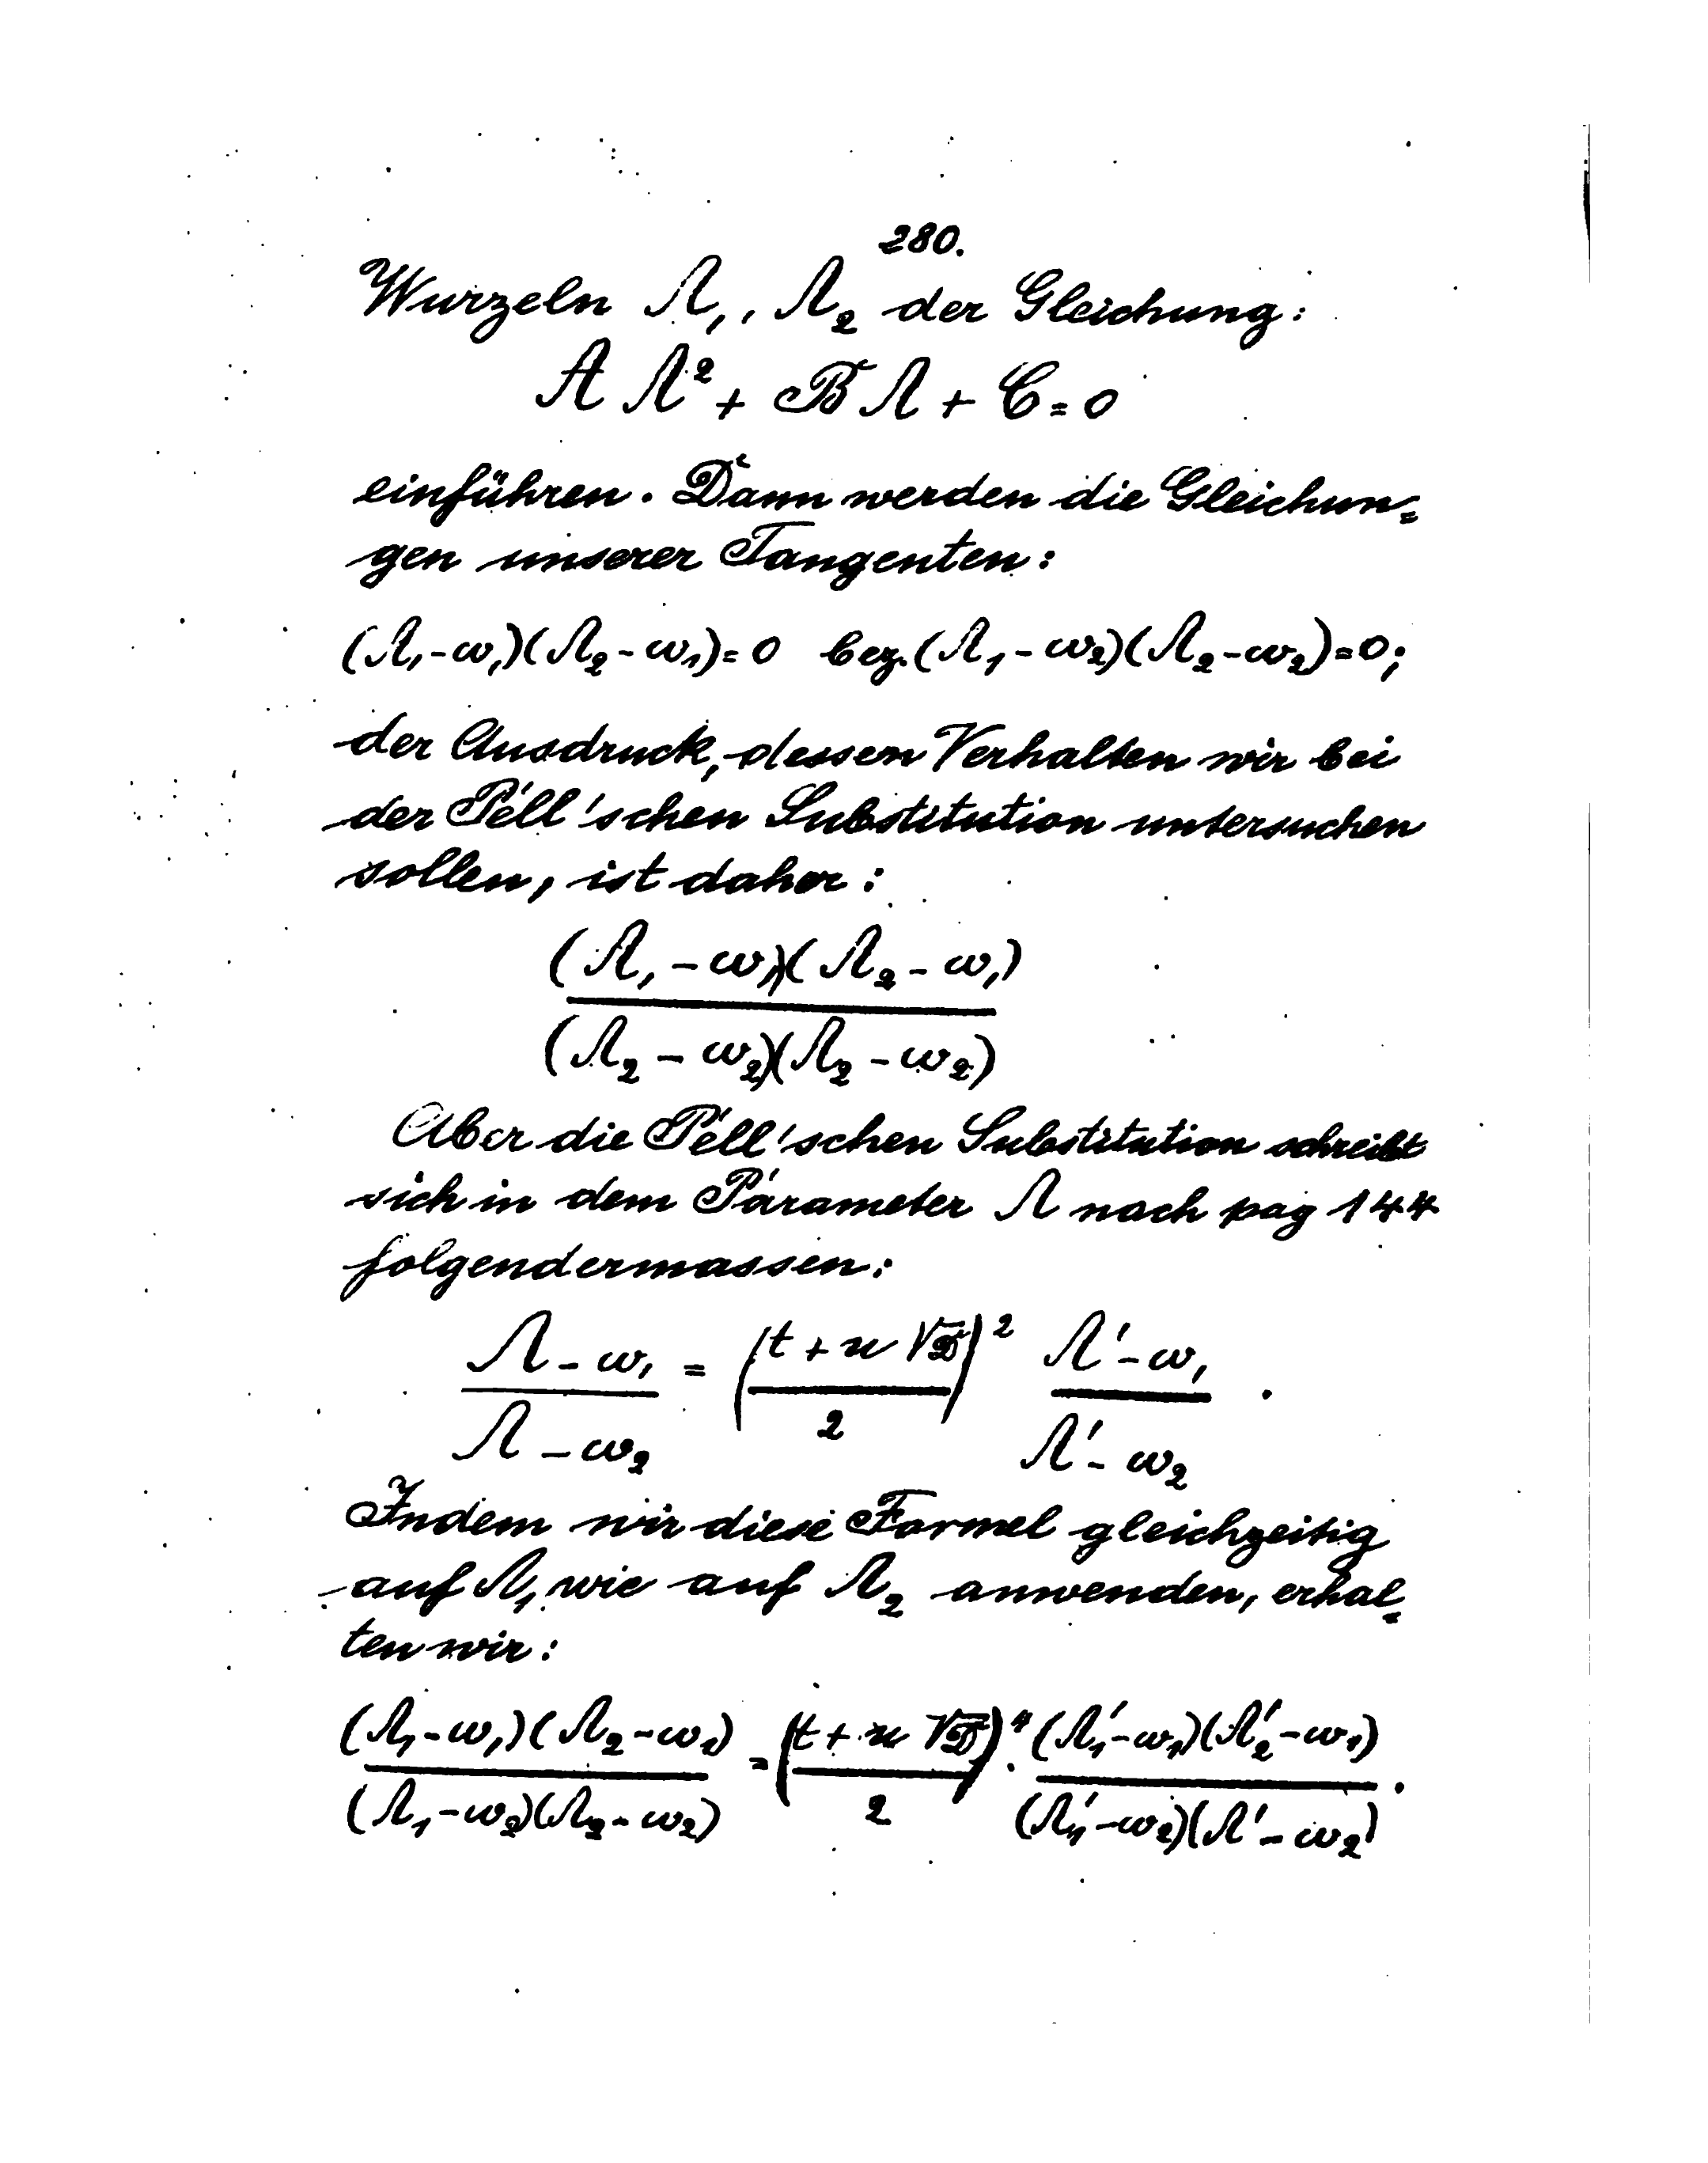 280.
Wurzeln Λ₁, Λ₂ der Gleichung:
A Λ² + B Λ + C = 0
einführen. Dann werden die Gleichun=
gen unserer Tangenten:
(Λ₁-ω₁)(Λ₂-ω₁)=0 bez. (Λ₁-ω₂)(Λ₂-ω₂)=0;
der Ausdruck, dessen Verhalten wir bei
der Pell'schen Substitution untersuchen
sollen, ist daher:
(Λ₁-ω₁)(Λ₂-ω₁)
(Λ₂-ω₂)(Λ₂-ω₂)
Aber die Pell'schen Substitution schreibt
sich in dem Parameter Λ nach pag 144
folgendermassen:
(Λ-ω₁)/(Λ-ω₂) = ((t+u√D)/2)² (Λ'-ω₁)/(Λ'-ω₂).
Indem wir diese Formel gleichzeitig
auf Λ₁ wie auf Λ₂ anwenden, erhal=
ten wir:
(Λ₁-ω₁)(Λ₂-ω₁)/(Λ₁-ω₂)(Λ₂-ω₂) = ((t+u√D)/2)⁴ · (Λ₁'-ω₁)(Λ₂'-ω₁)/(Λ₁'-ω₂)(Λ'-ω₂).